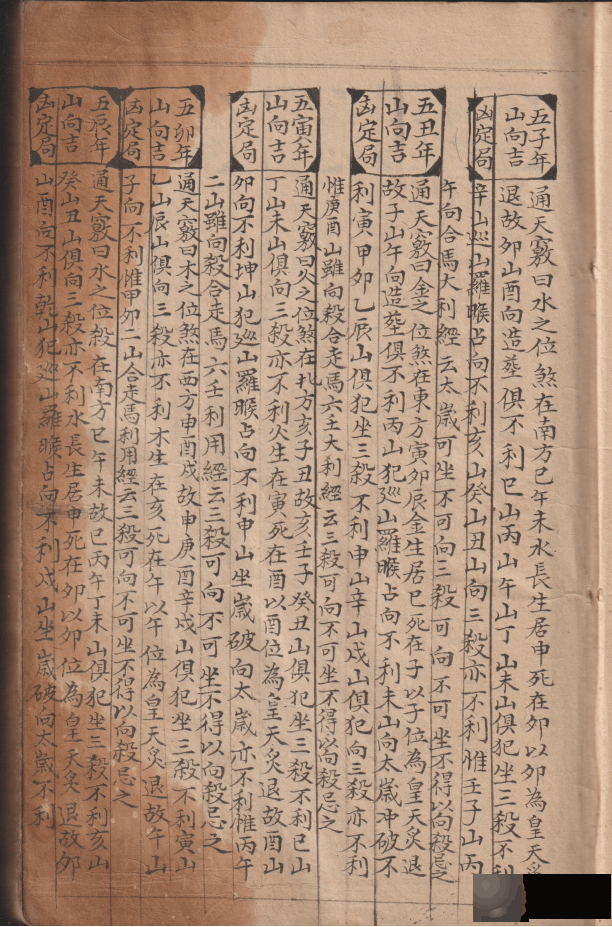 五子年
山向吉
凶定局
通天竅曰水之位煞在南方巳午未水長生居申死在卯以卯為皇天炙
退故卯山酉向造塟俱不利巳山丙山午山丁山未山俱犯坐三殺不利
辛山廵山羅睺占向不利亥山癸山丑山向三殺亦不利惟壬子山丙
午向合馬大利經云太歲可坐不可向三殺可向不可坐不得以向殺忌之
五丑年
山向吉
凶定局
通天竅曰金之位煞在東方寅卯辰金生居巳死在子以子位為皇天炙退
故子山午向造塟俱不利丙山犯廵山羅睺占向不利未山向太歲冲破不
利寅甲卯乙辰山俱犯坐三殺不利申山辛山戌山俱犯向三殺亦不利
惟庚酉山雖向殺合走馬六壬大利經云三殺可向不可坐不得以向殺忌之
五寅年
山向吉
凶定局
通天竅曰火之位煞在北方亥子丑故亥壬子癸丑山俱犯坐三殺不利巳山
丁山未山俱向三殺亦不利火生在寅死在酉以酉位為皇天炙退故酉山
卯向不利坤山犯廵山羅睺占向不利申山坐歲破向太歲亦不利惟丙午
二山雖向殺合走馬六壬利用經云三殺可向不可坐不得以向殺忌之
五卯年
山向吉
凶定局
通天竅曰木之位煞在西方申酉戌故申庚酉辛戌山俱犯坐三殺不利寅山
乙山辰山俱向三殺亦不利木生在亥死在午以午位為皇天炙退故午山
子向不利惟甲卯二山合走馬利用經云三殺可向不可坐不得以向殺忌之
五辰年
山向吉
凶定局
通天竅曰水之位殺在南方巳午未故巳丙午丁未山俱犯坐三殺不利亥山
癸山丑山俱向三殺亦不利水長生居申死在卯以卯位為皇天炙退故卯
山酉向不利乾山犯廵山羅睺占向不利戌山坐歲破向太歲不利